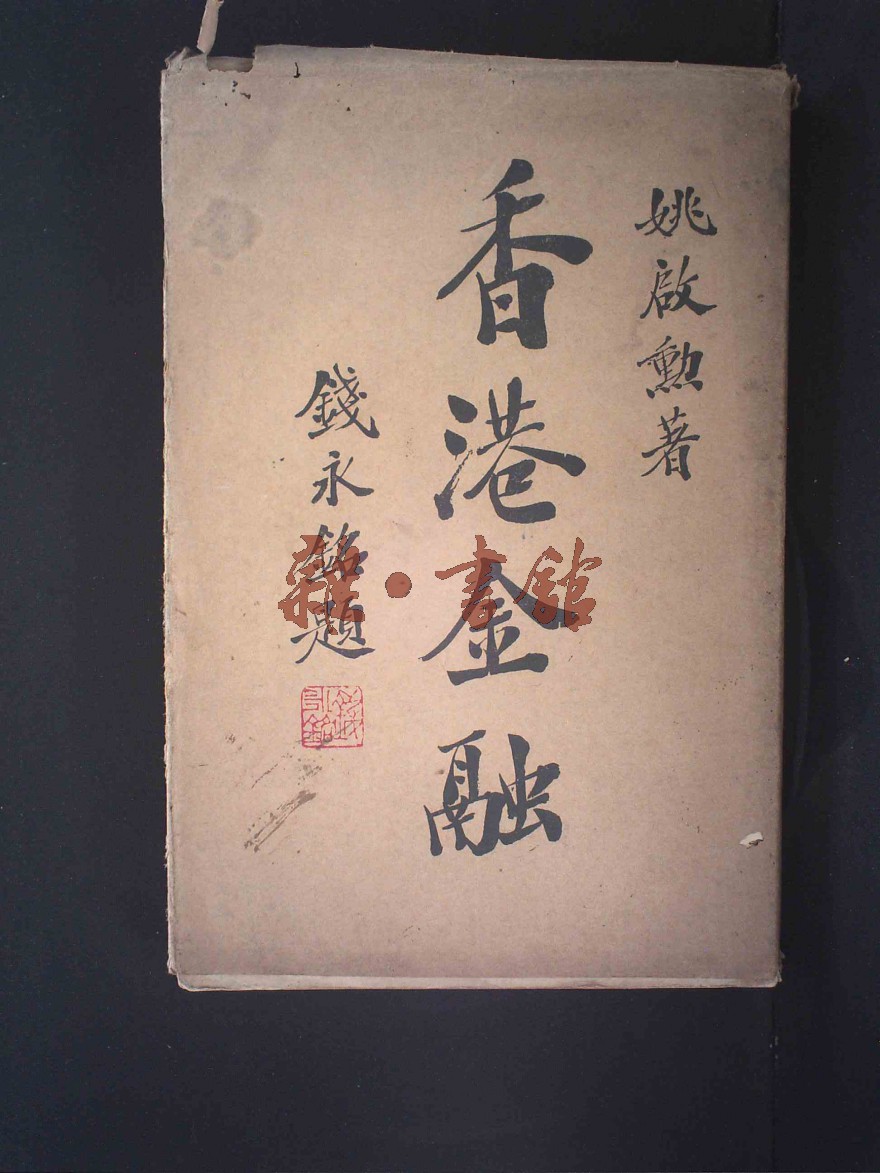 姚啟勲著
香港金融
錢永銘題
雜·書館